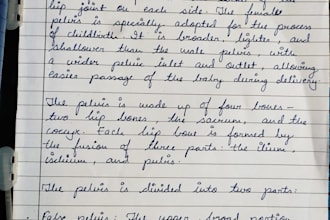 hip joint on each side. The female
pelvis is specially adapted for the process
of childbirth. It is broader, lighter, and
shallower than the male pelvis, with
a wider pelvic inlet and outlet, allowing
easier passage of the baby during delivery
The pelvis is made up of four bones-
two hip bones, the sacrum, and the
coccyx. Each hip bone is formed by
the fusion of three parts: the ilium,
ischium, and pubis.
The pelvis is divided into two parts:
False pelvis: The upper, broad portion